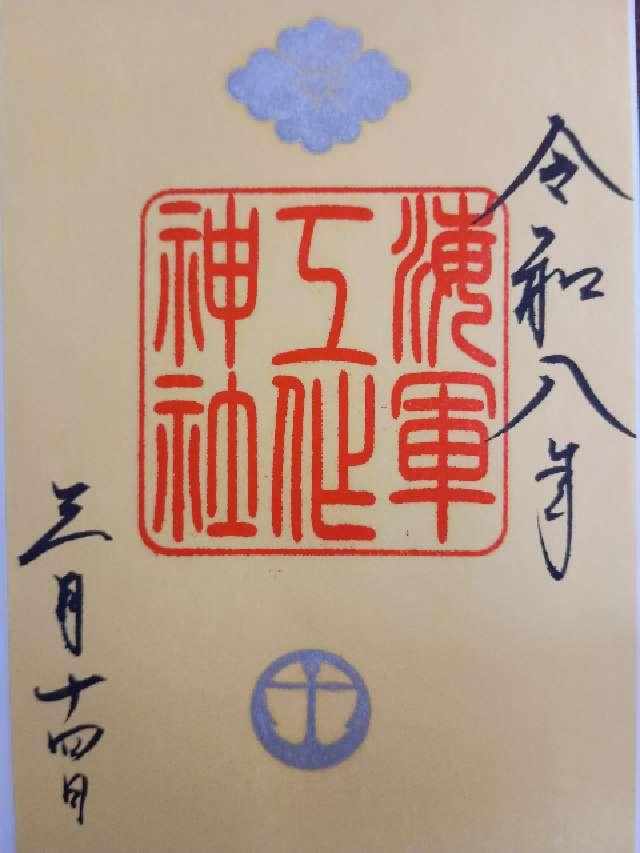 令和八年
海軍
工作
神社
三月十四日